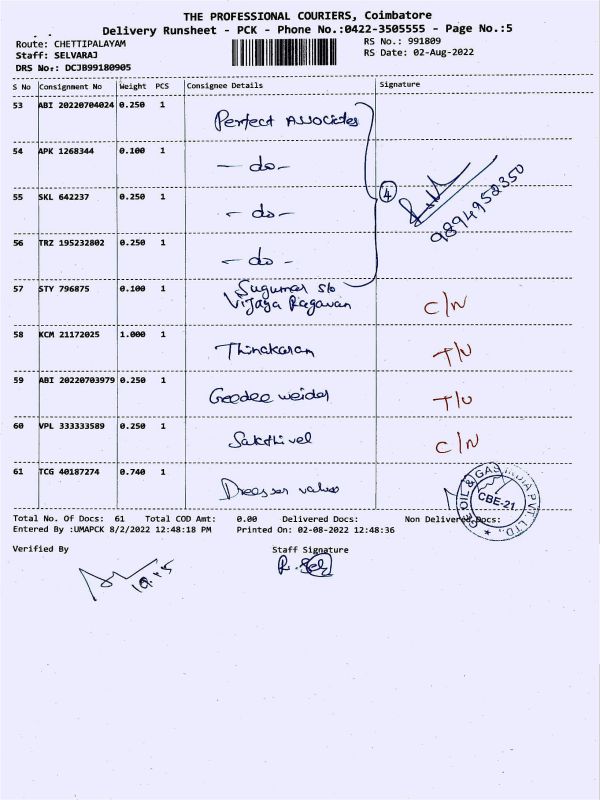 THE PROFESSIONAL COURIERS, Coimbatore
Delivery Runsheet - PCK - Phone No.:0422-3505555 - Page No.:5
Route: CHETTIPALAYAM RS No.: 991809
Staff: SELVARAJ RS Date: 02-Aug-2022
DRS No.: DCJB99180905
S No Consignment No Weight PCS Consignee Details Signature
53 ABI 20220704024 0.250 1 Perfect Associates
54 APK 1268344 0.100 1 - do -
55 SKL 642237 0.250 1 - do - 4 9894952350
56 TRZ 195232802 0.250 1 - do -
57 STY 796875 0.100 1 Sugumar s/o
Vijaya Ragavan C/N
58 KCM 21172025 1.000 1 Thinakaran T/U
59 ABI 20220703979 0.250 1 Geedee weider T/U
60 VPL 333333589 0.250 1 Sakthivel C/N
61 TCG 40187274 0.740 1 Dresser valve
OIL & GAS INDIA PVT. LTD.,
CBE-21.
Total No. Of Docs: 61 Total COD Amt: 0.00 Delivered Docs: Non Delivered Docs:
Entered By :UMAPCK 8/2/2022 12:48:18 PM Printed On: 02-08-2022 12:48:36
Verified By Staff Signature